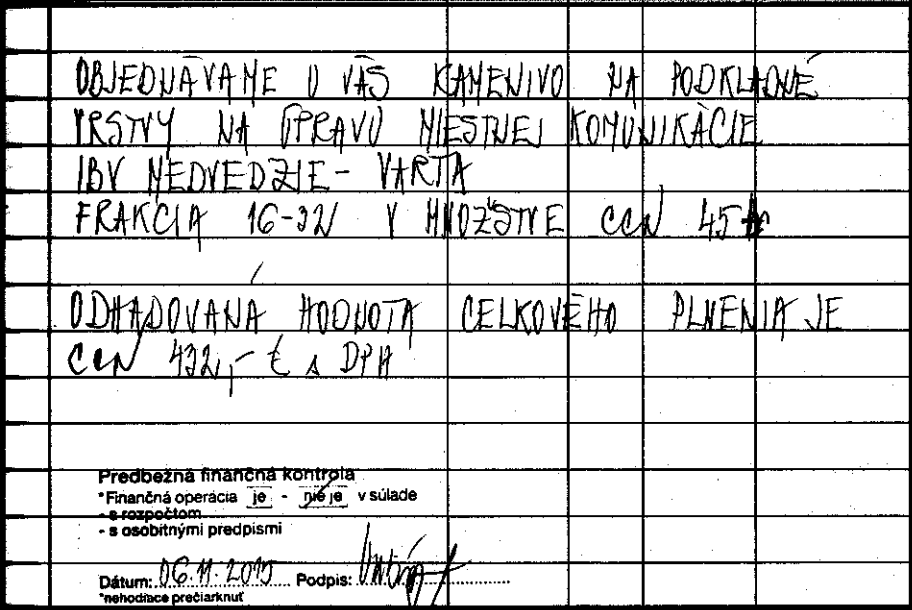 OBJEDNÁVAME U VÁS KAMENIVO NA PODKLADNÉ
VRSTVY NA ÚPRAVU MIESTNEJ KOMUNIKÁCIE
IBV MEDVEDZIE - VARTA
FRAKCIA 16-32 V MNOŽSTVE CCA 45
ODHADOVANÁ HODNOTA CELKOVÉHO PLNENIA JE
CCA 432,- € s DPH
Predbežná finančná kontrola
*Finančná operácia je - nie je v súlade
- s rozpočtom
- s osobitnými predpismi
Dátum: 06.11. Podpis:
*nehodiace prečiarknuť